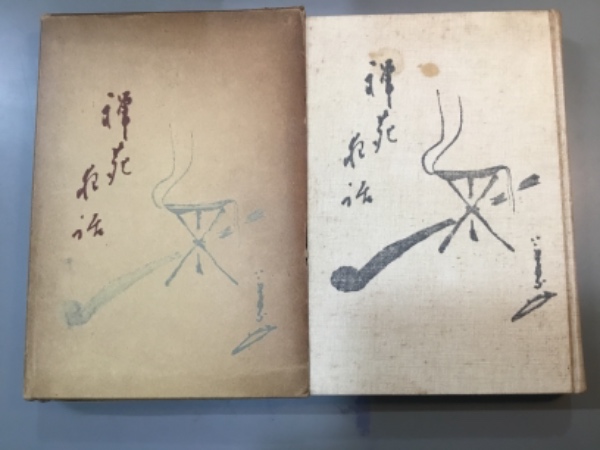 禅苑
夜話
禅苑
夜話